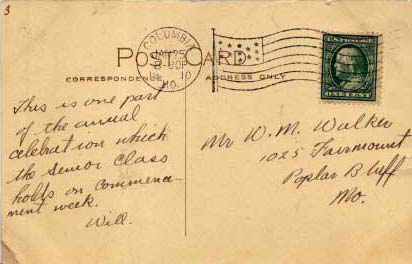 3
POST CARD
CORRESPONDENCE
ADDRESS ONLY
COLUMBIA
10
MO.
ONE CENT
This is one part
of the annual
celebration which
the Senior Class
holds on Commence-
ment week.
Will.
Mr W. M. Walker
1025 Fairmount
Poplar Bluff
Mo.